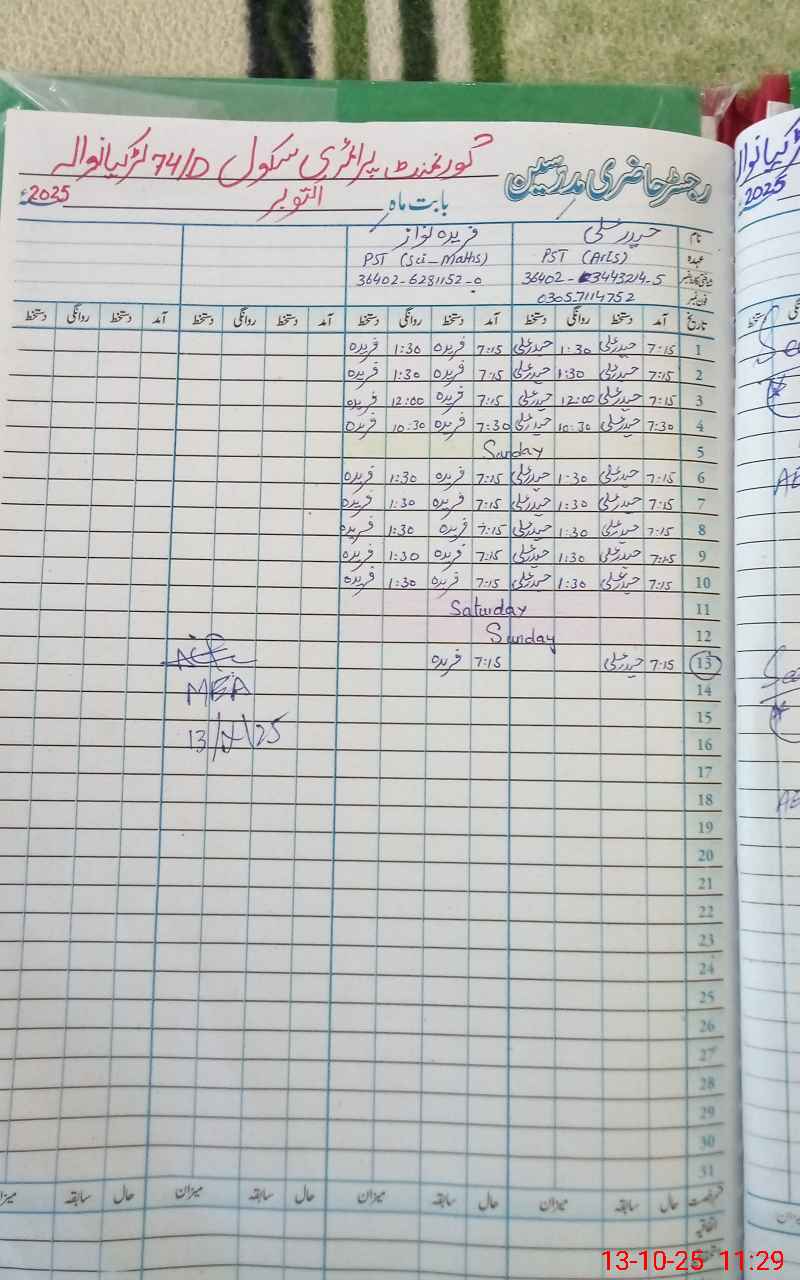 رجسٹر حاضری مدرسین گورنمنٹ پرائمری سکول 74/D لڑکیانوالہ
بابت ماہ اکتوبر 2025ء
نام حیدر علی فریدہ نواز
عہدہ PST (Arts) PST (Sci-Maths)
36402-3443214-5 36402-6281152-0
فون نمبر 0305-7114752
تاریخ آمد دستخط روانگی دستخط آمد دستخط روانگی دستخط آمد دستخط روانگی دستخط آمد دستخط روانگی دستخط
1 7:15 حیدر علی 1:30 حیدر علی 7:15 فریدہ 1:30 فریدہ
2 7:15 حیدر علی 1:30 حیدر علی 7:15 فریدہ 1:30 فریدہ
3 7:15 حیدر علی 12:00 حیدر علی 7:15 فریدہ 12:00 فریدہ
4 7:30 حیدر علی 10:30 حیدر علی 7:30 فریدہ 10:30 فریدہ
5 Sunday
6 7:15 حیدر علی 1:30 حیدر علی 7:15 فریدہ 1:30 فریدہ
7 7:15 حیدر علی 1:30 حیدر علی 7:15 فریدہ 1:30 فریدہ
8 7:15 حیدر علی 1:30 حیدر علی 7:15 فریدہ 1:30 فریدہ
9 7:15 حیدر علی 1:30 حیدر علی 7:15 فریدہ 1:30 فریدہ
10 7:15 حیدر علی 1:30 حیدر علی 7:15 فریدہ 1:30 فریدہ
11 Saturday
12 Sunday
13 7:15 حیدر علی 7:15 فریدہ
14 MEA
15
16 13/ /25
17
18
19
20
21
22
23
24
25
26
27
28
29
30
31
رخصت حال سابقہ میزان حال سابقہ میزان حال سابقہ میزان حال سابقہ میزان
اتفاقیہ
2025
13-10-25 11:29